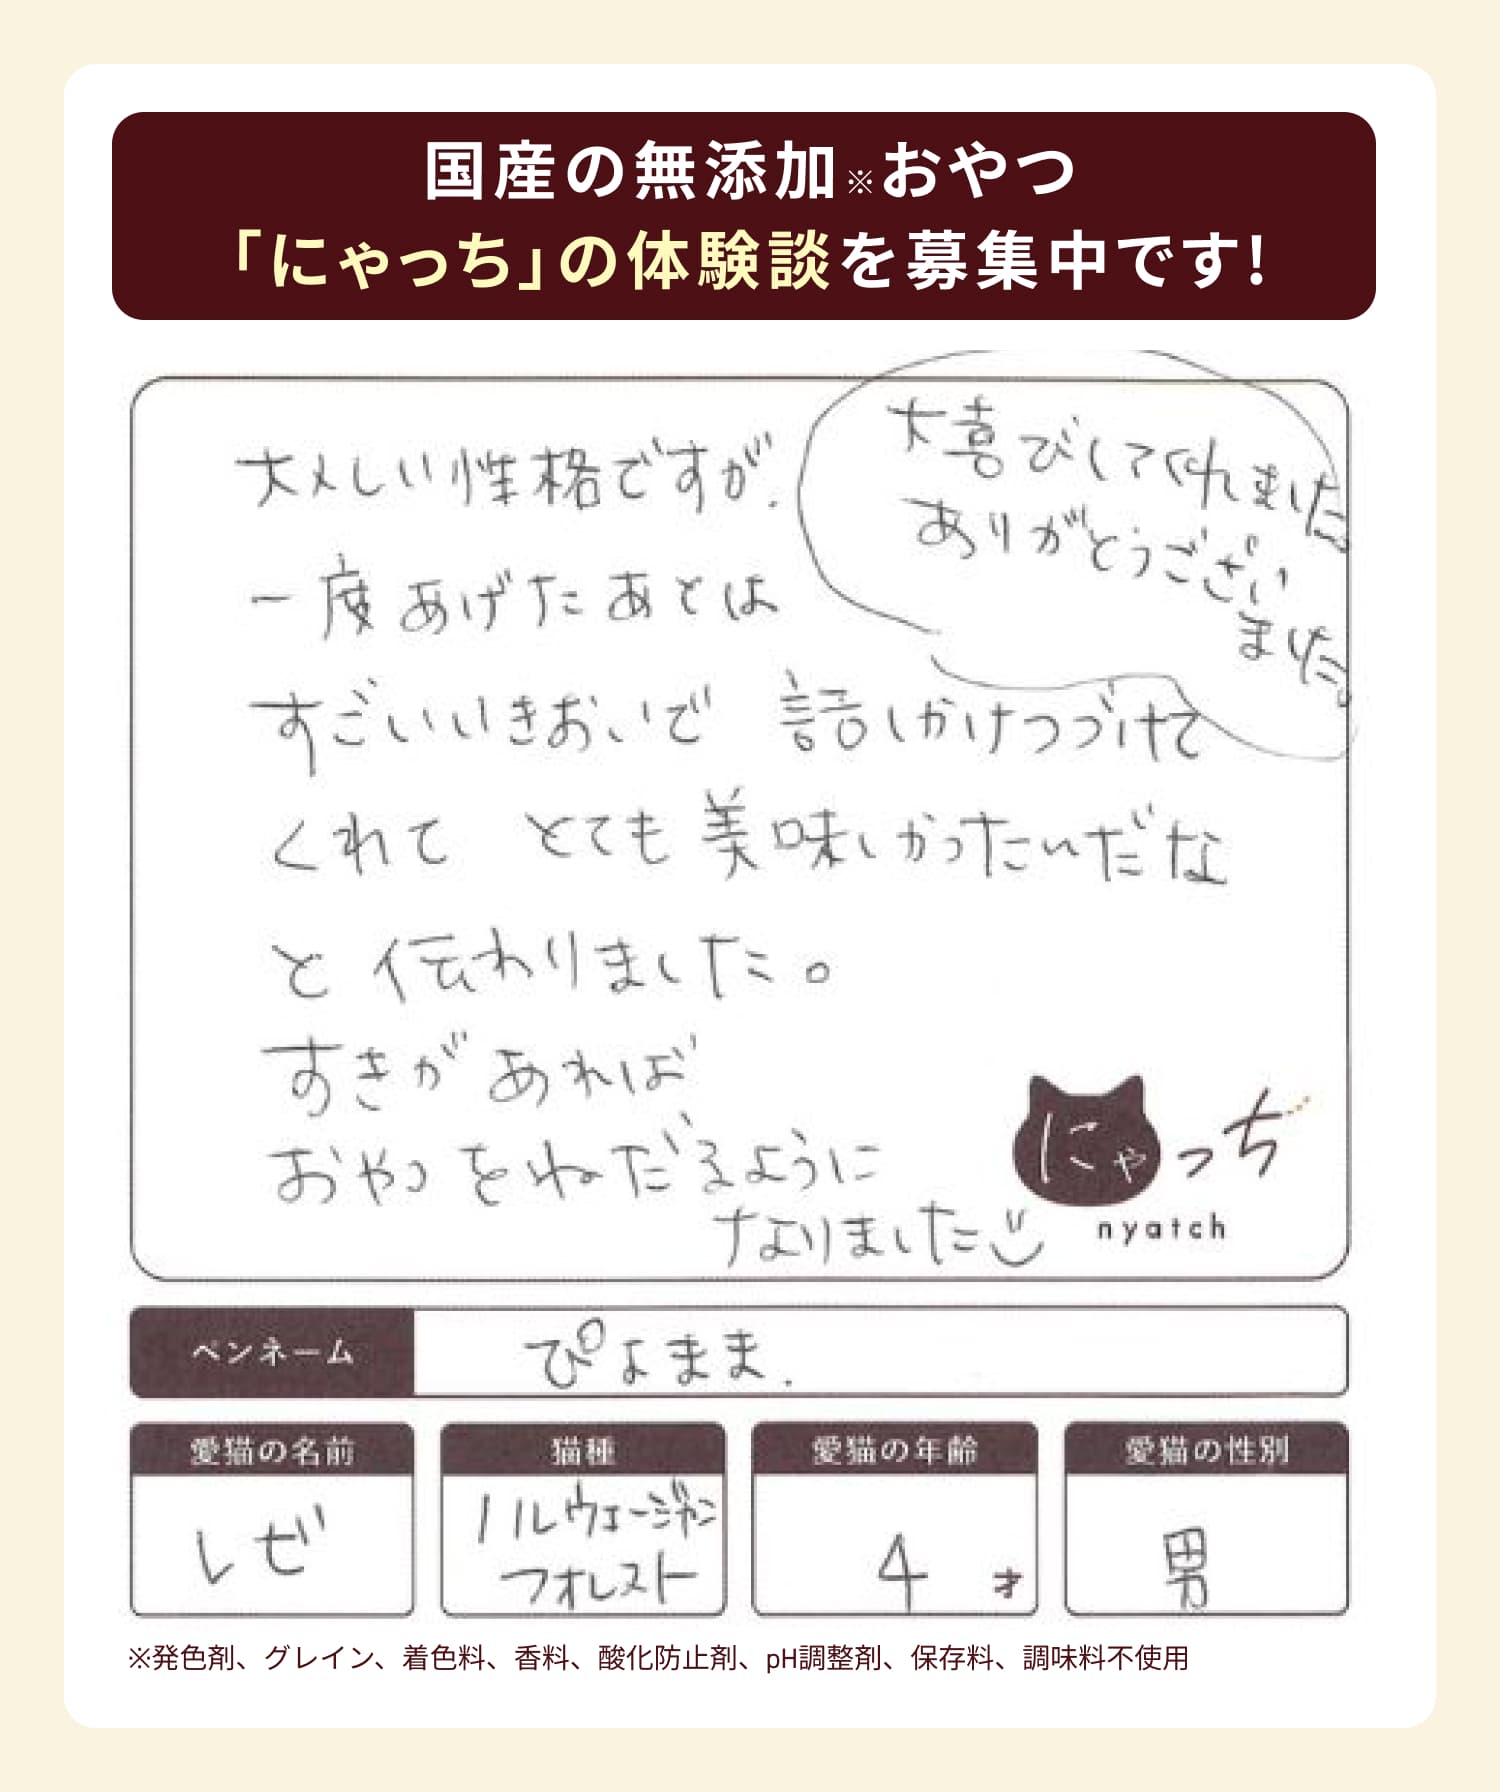 国産の無添加※おやつ
「にゃっち」の体験談を募集中です!
大喜びしてくれました。
ありがとうござい
ました。
大人しい性格ですが、
一度あげたあとは
すごいいきおいで 話しかけつづけて
くれて とても美味しかったんだな
と伝わりました。
すきがあれば
おやつをねだるように
なりました
にゃっち
nyatch
ペンネーム
ぴよまま.
愛猫の名前
レゼ
猫種
ノルウェージャン
フォレスト
愛猫の年齢
4才
愛猫の性別
男
※発色剤、グレイン、着色料、香料、酸化防止剤、pH調整剤、保存料、調味料不使用